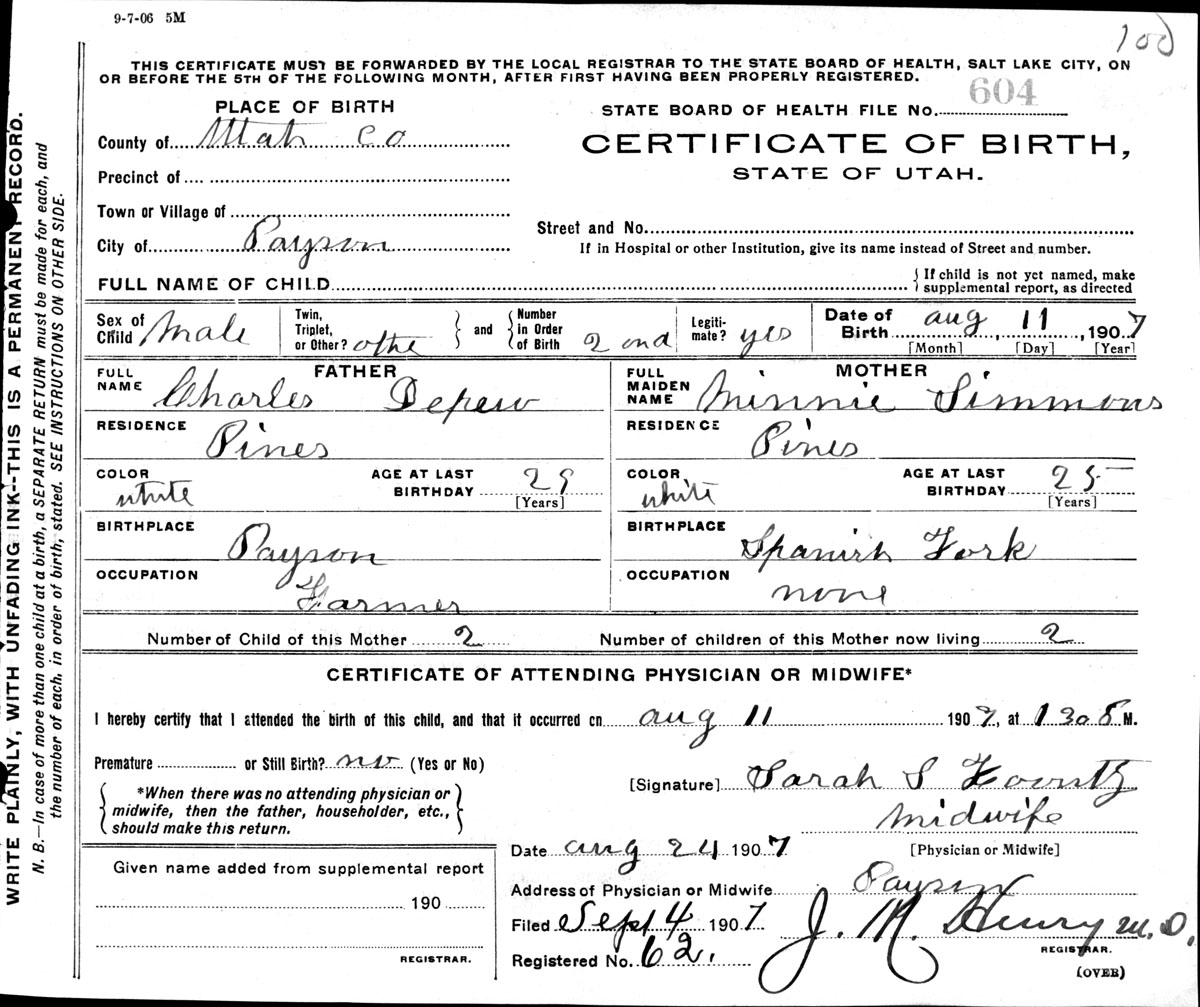 9-7-06 5M
100
THIS CERTIFICATE MUST BE FORWARDED BY THE LOCAL REGISTRAR TO THE STATE BOARD OF HEALTH, SALT LAKE CITY, ON
OR BEFORE THE 5TH OF THE FOLLOWING MONTH, AFTER FIRST HAVING BEEN PROPERLY REGISTERED.
PLACE OF BIRTH
STATE BOARD OF HEALTH FILE No. 604
County of Utah Co
CERTIFICATE OF BIRTH,
STATE OF UTAH.
Precinct of
Town or Village of
Street and No.
City of Payson
If in Hospital or other Institution, give its name instead of Street and number.
FULL NAME OF CHILD
{If child is not yet named, make
supplemental report, as directed
Sex of Child Male
Twin, Triplet, or Other? othe } and { Number in Order of Birth 2 ond
Legiti-mate? yes
Date of Birth aug 11, 1907
[Month] [Day] [Year]
FATHER
FULL NAME Charles Depew
RESIDENCE Pines
COLOR white AGE AT LAST BIRTHDAY 29 [Years]
BIRTHPLACE Payson
OCCUPATION Farmer
MOTHER
FULL MAIDEN NAME Minnie Simmons
RESIDENCE Pines
COLOR white AGE AT LAST BIRTHDAY 25 [Years]
BIRTHPLACE Spanish Fork
OCCUPATION none
Number of Child of this Mother 2 Number of children of this Mother now living 2
CERTIFICATE OF ATTENDING PHYSICIAN OR MIDWIFE*
I hereby certify that I attended the birth of this child, and that it occurred on aug 11 1907, at 1 30 M.
Premature or Still Birth? no (Yes or No)
*When there was no attending physician or
midwife, then the father, householder, etc.,
should make this return.
[Signature] Sarah S
Midwife
[Physician or Midwife]
Date aug 24 1907
Address of Physician or Midwife Payson
Filed Sept 4 1907 J. M. Henry M.D.
REGISTRAR.
Registered No. 62.
(OVER)
Given name added from supplemental report
190
REGISTRAR.
WRITE PLAINLY, WITH UNFADING INK--THIS IS A PERMANENT RECORD.
N. B.—In case of more than one child at a birth, a SEPARATE RETURN must be made for each, and
the number of each, in order of birth, stated. SEE INSTRUCTIONS ON OTHER SIDE.